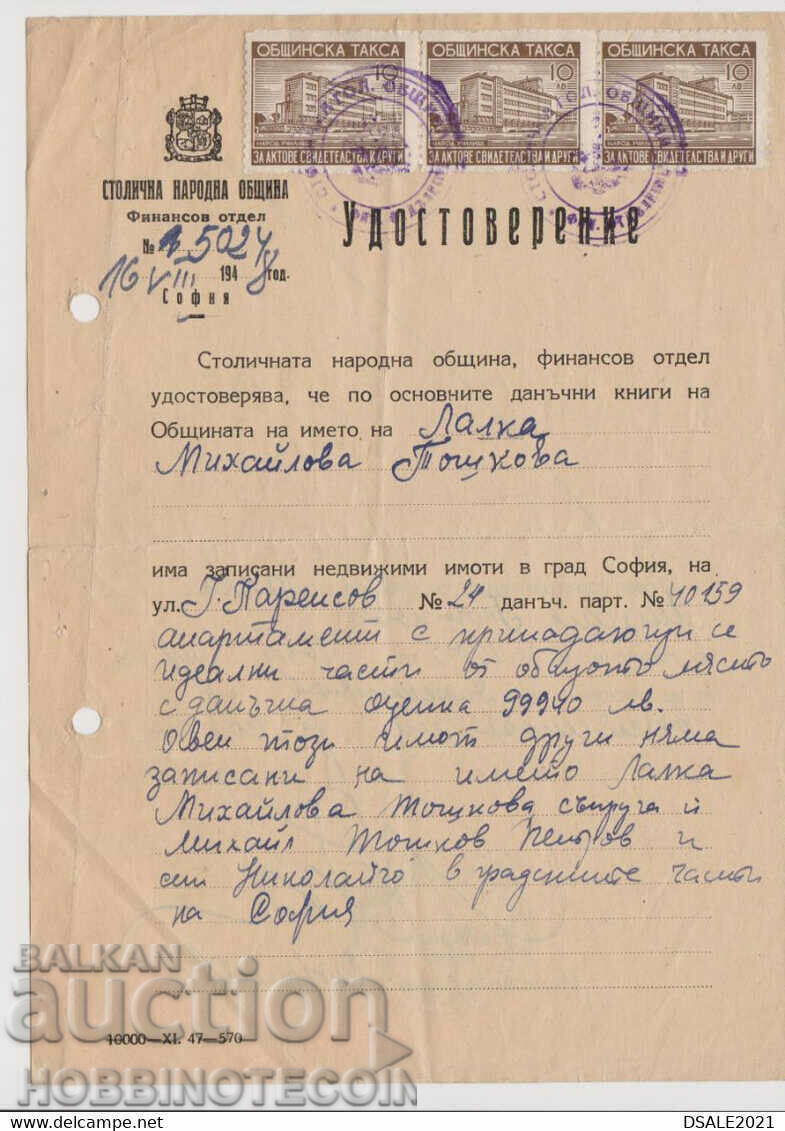 ОБЩИНСКА ТАКСА ОБЩИНСКА ТАКСА ОБЩИНСКА ТАКСА
10 10 ЛВ 10 ЛВ
ЗА АКТОВЕ СВИДЕТЕЛСТВА И ДРУГИ ЗА АКТОВЕ СВИДЕТЕЛСТВА И ДРУГИ ЗА АКТОВЕ СВИДЕТЕЛСТВА И ДРУГИ
СТОЛИЧНА НАРОДНА ОБЩИНА
Финансов отдел
№ 5024
16 VIII 1948 год.
София
Удостоверение
Столичната народна община, финансов отдел
удостоверява, че по основните данъчни книги на
Общината на името на Лалка
Михайлова Тошкова
има записани недвижими имоти в град София, на
ул. № 24 данъч. парт. № 40159
апартамент с принадлежащи се
идеални части от общото място
с данъчна оценка 99940 лв.
Освен този имот други няма
записани на името Лалка
Михайлова Тошкова съпруга ѝ
Михаил Тошков Петров и
син Николайчо в градските части
на София
10000—XI. 47—570
BALKAN
auction
HOBBINOTECOIN
www.balkanauction.com
DSALE2021